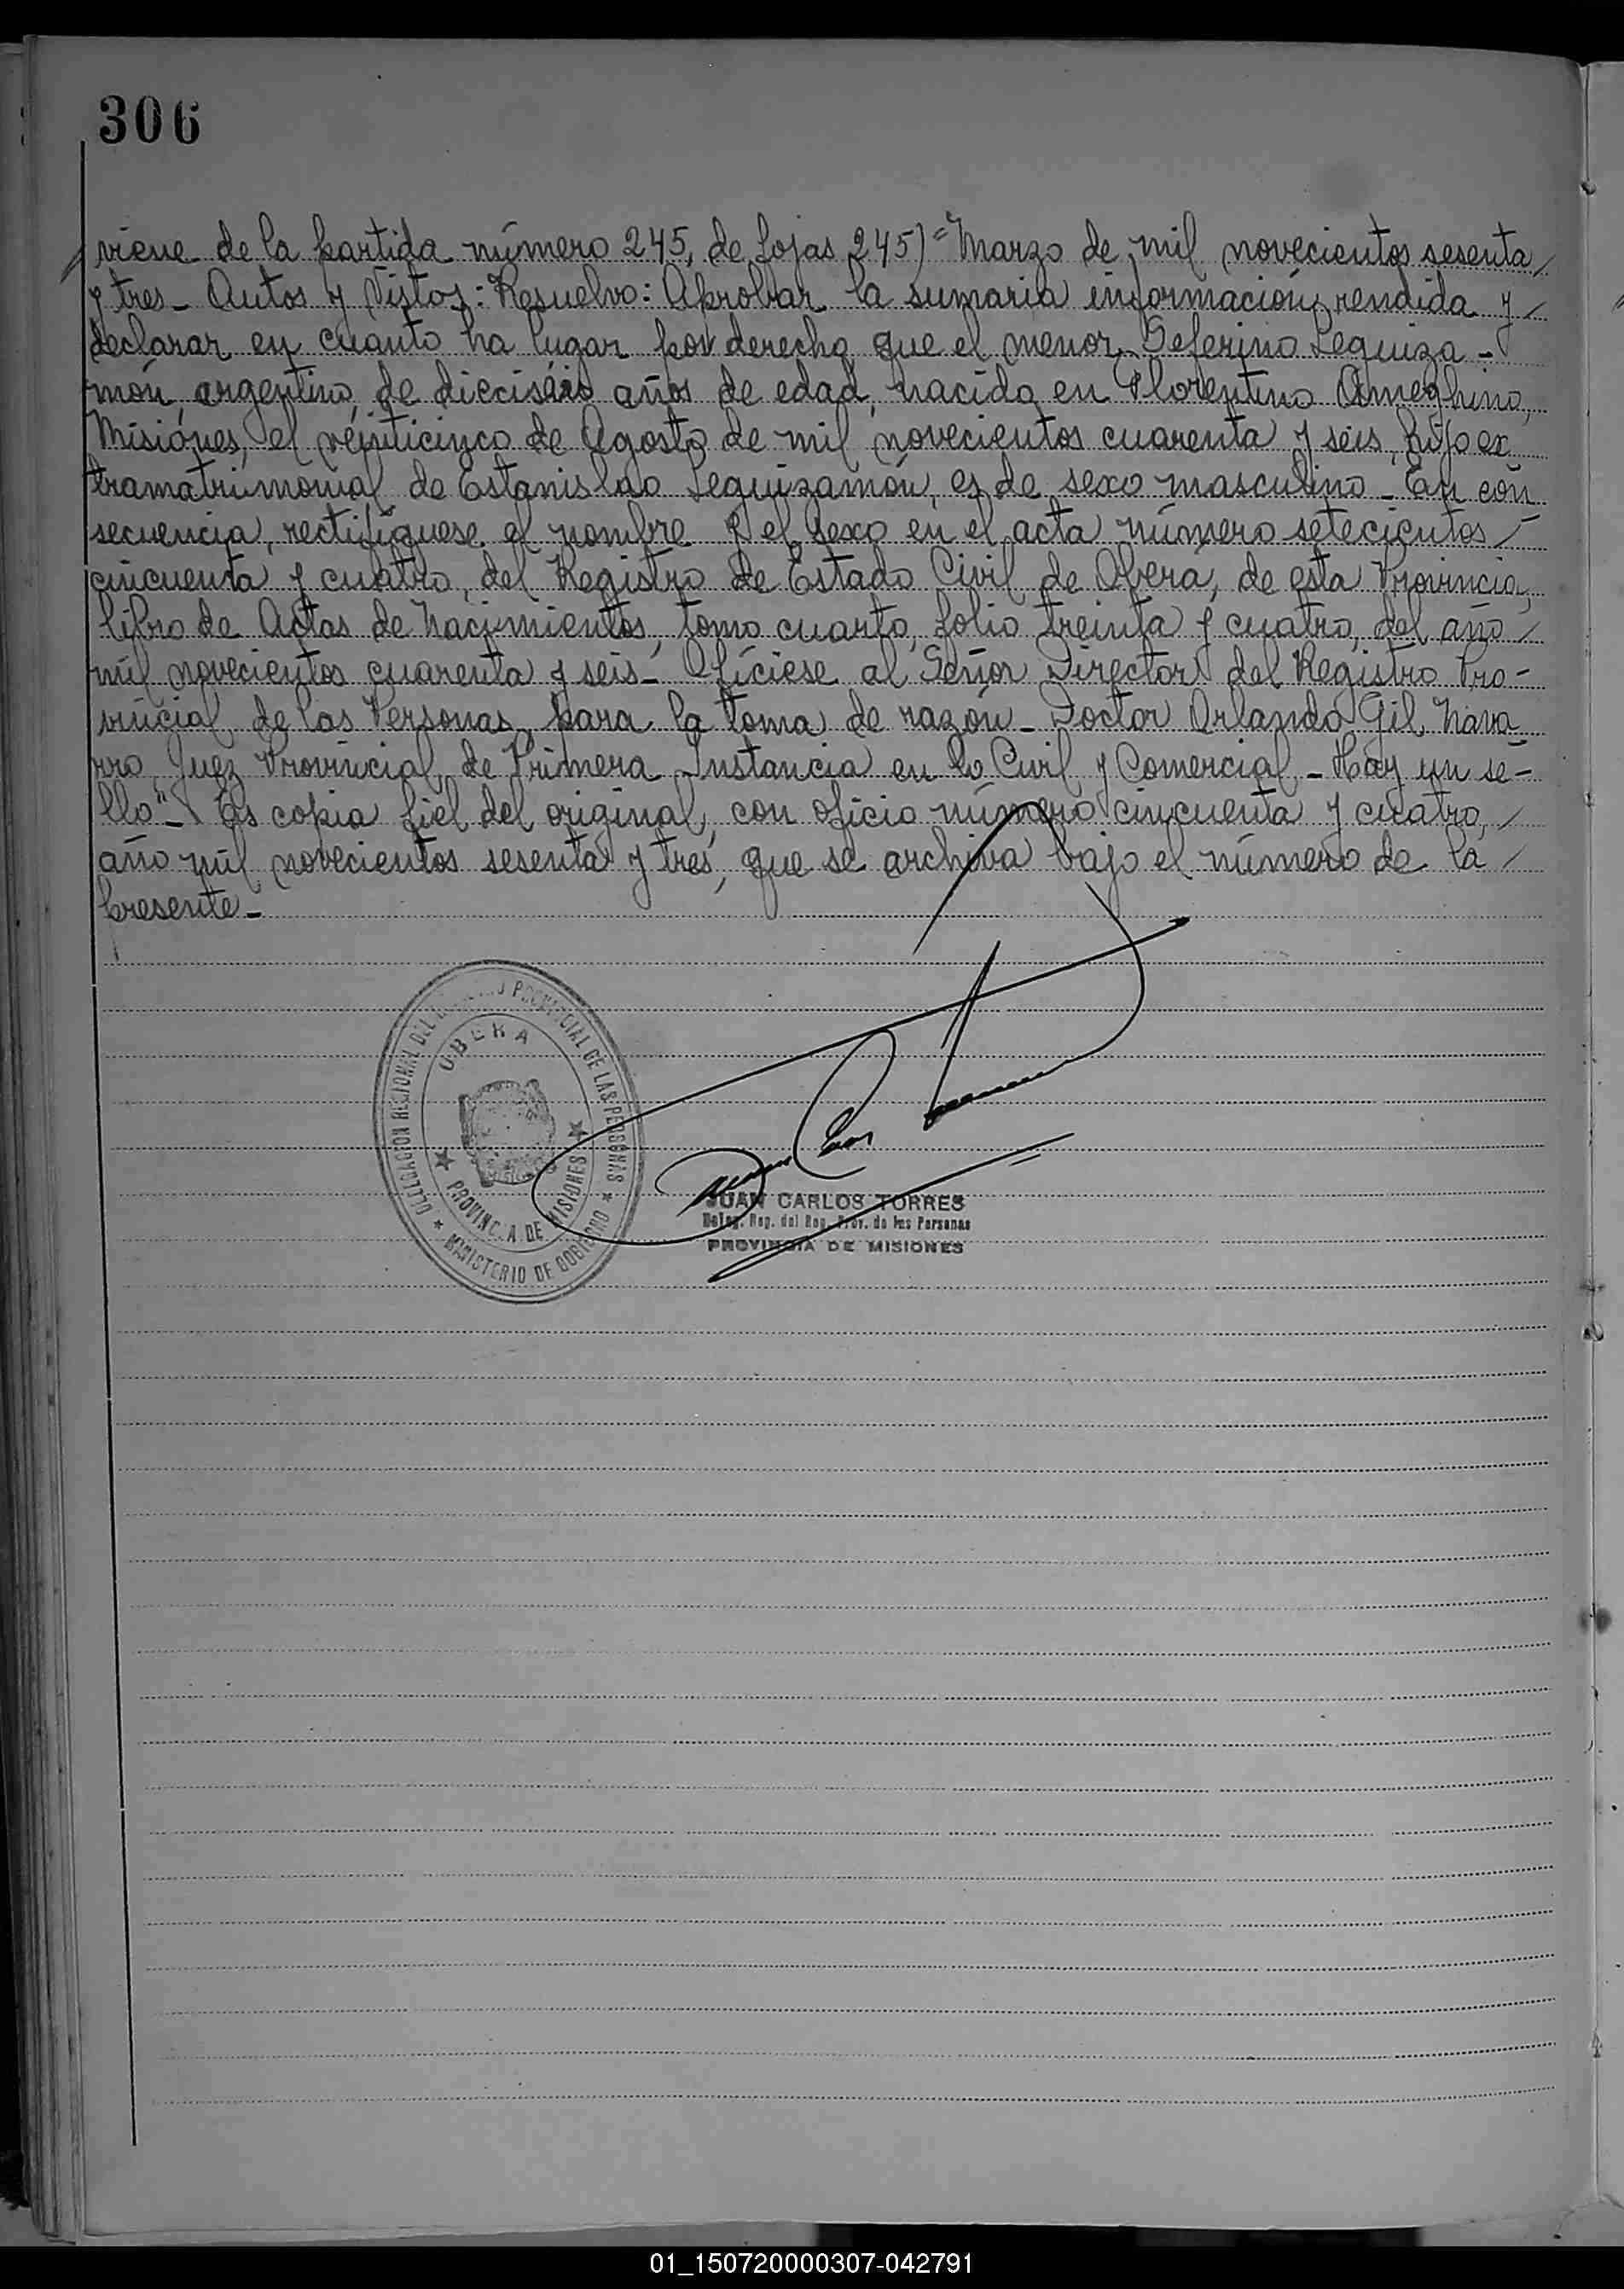 306
viene de la partida número 245, de fojas 245)= Marzo de mil novecientos sesenta
y tres- Autos y Vistos: Resuelvo: Aprobar la sumaria información, rendida y
declarar en cuanto ha lugar por derecho que el menor Seferino Leguiza-
món, argentino, de dieciséis años de edad, nacido en Florentino Ameghino,
Misiones, el veinticinco de Agosto de mil novecientos cuarenta y seis, hijo ex
tramatrimonial de Estanislao Leguizamón, es de sexo masculino- En con
secuencia, rectifíquese el nombre y el sexo en el acta número setecientos
cincuenta y cuatro, del Registro de Estado Civil de Oberá, de esta Provincia,
libro de Actas de Nacimientos, tomo cuarto, folio treinta y cuatro, del año
mil novecientos cuarenta y seis- Ofíciese al Señor Director del Registro Pro-
vincial de las Personas para la toma de razón- Doctor Orlando Gil Nava
rro, Juez Provincial, de Primera Instancia en lo Civil y Comercial.- Hay un se-
llo"- Es copia fiel del original, con oficio número cincuenta y cuatro,
año mil novecientos sesenta y tres, que se archiva bajo el número de la
presente-
DELEGACION REGIONAL DEL REGISTRO PROVINCIAL DE LAS PERSONAS
OBERA
PROVINCIA DE MISIONES
MINISTERIO DE GOBIERNO
JUAN CARLOS TORRES
Deleg. Reg. del Reg. Prov. de las Personas
PROVINCIA DE MISIONES
01_150720000307-042791